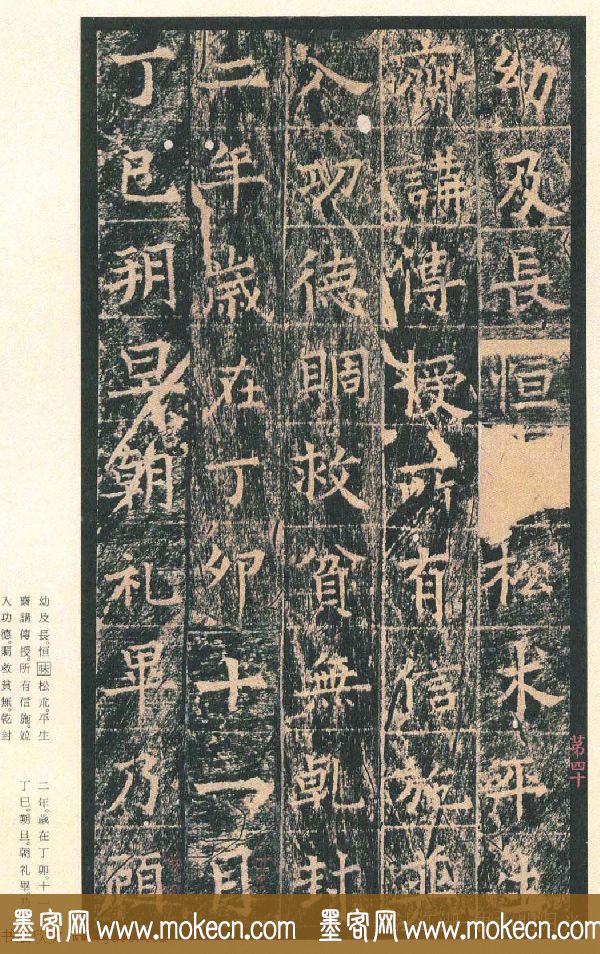 幼及長恒松朮平生
齋講傳授所有信施並
入功德賙救貧無乾封
二年歲在丁卯十一月
丁巳朔旦朝礼畢乃顧
第四十
幼及長。恒松朮。平生
齋講傳授。所有信施。並
入功德。賙救貧無。乾封
二年。歲在丁卯。十
丁巳。朔旦。朝礼畢。
墨客网 www.mokecn.com 墨客网 www.mokecn.com